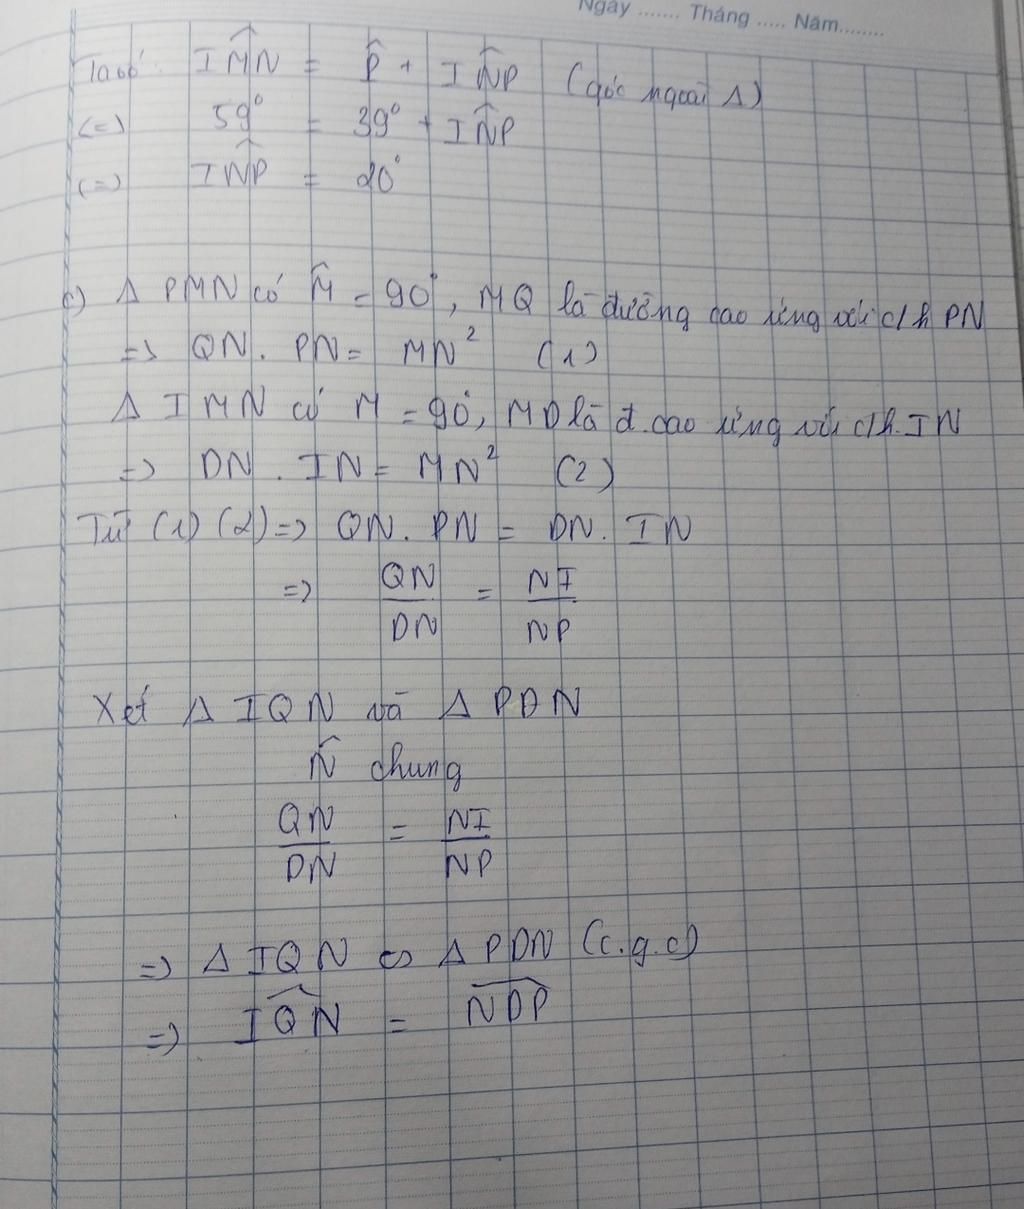 Ngày ....... Tháng ..... Năm........
Ta có: IM̂N = P̂ + IN̂P (góc ngoài Δ)
(=) 59° = 39° + IN̂P
(=) IN̂P = 20°
c) Δ PMN có M̂ = 90°, MQ là đường cao ứng với c/h PN
=> QN . PN = MN² (1)
Δ IMN có M = 90°, MD là đ.cao ứng với c/h. IN
=> DN . IN = MN² (2)
Từ (1) (2) => QN . PN = DN . IN
=> QN/DN = NI/NP
Xét Δ IQN và Δ PDN
N̂ chung
QN/DN = NI/NP
=> Δ IQN ∽ Δ PDN (c.g.c)
=> IQ̂N = ND̂P